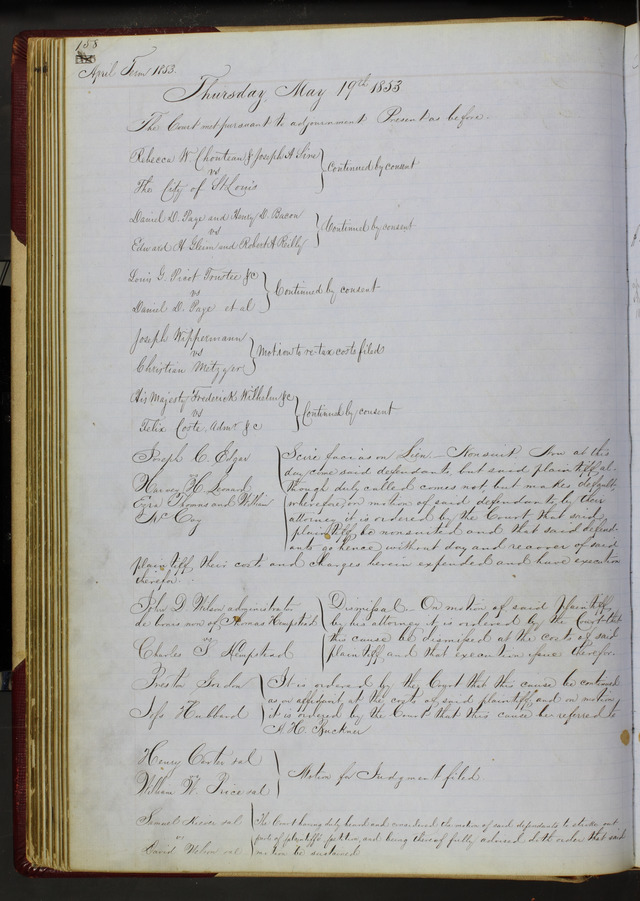 188
April Term 1853.
Thursday, May 19th 1853
The Court met pursuant to adjournment Present as before.
Rebecca W. Chouteau & Joseph A Sire
vs
The City of St Louis
Continued by consent
Daniel D. Page and Henry D. Bacon
vs
Edward H. Gleim and Robert A Reilly
Continued by consent
Louis G. Picot Trustee &c
vs
Daniel D. Page et al
Continued by consent
Joseph Wippermann
vs
Christian Metzger
Motion to re-tax costs filed
His Majesty Frederick Wilhelm &c
vs
Felix Coste Admr &c
Continued by consent
Joseph C. Edgar
Harvey H. Leonard
Ezra Thomas and William
McCoy
Scire facias on Lien - Nonsuit Now at this
day come said defendants but said plaintiff al-
though duly called comes not, but makes default,
wherefore on motion of said defendants by their
attorney it is ordered by the Court that said
plaintiff be nonsuited and that said defend-
ants go hence without day and recover of said
plaintiff their costs and charges herein expended and have execution
therefor
John D. Wilson administrator
de bonis non of Thomas Hempstead
vs
Charles S Hempstead
Dismissal - On motion of said Plaintiff
by his attorney it is ordered by the Court that
this cause be dismissed at the costs of said
plaintiff and that execution issue therefor.
Preston Gordon
Jefs Hubbard
It is ordered by the Court that this cause be continued
as on affidavit at the costs of said plaintiff and on motion
it is ordered by the Court that this cause be referred to
A. H. Buckner
Henry Carter et al
vs
William W. Price et al
Motion for Judgment filed
Samuel et al
vs
David et al
The Court having duly heard and considered the motion of said defendants to strike out
parts of plaintiffs petition, and being thereof fully advised doth order that said
motion be sustained